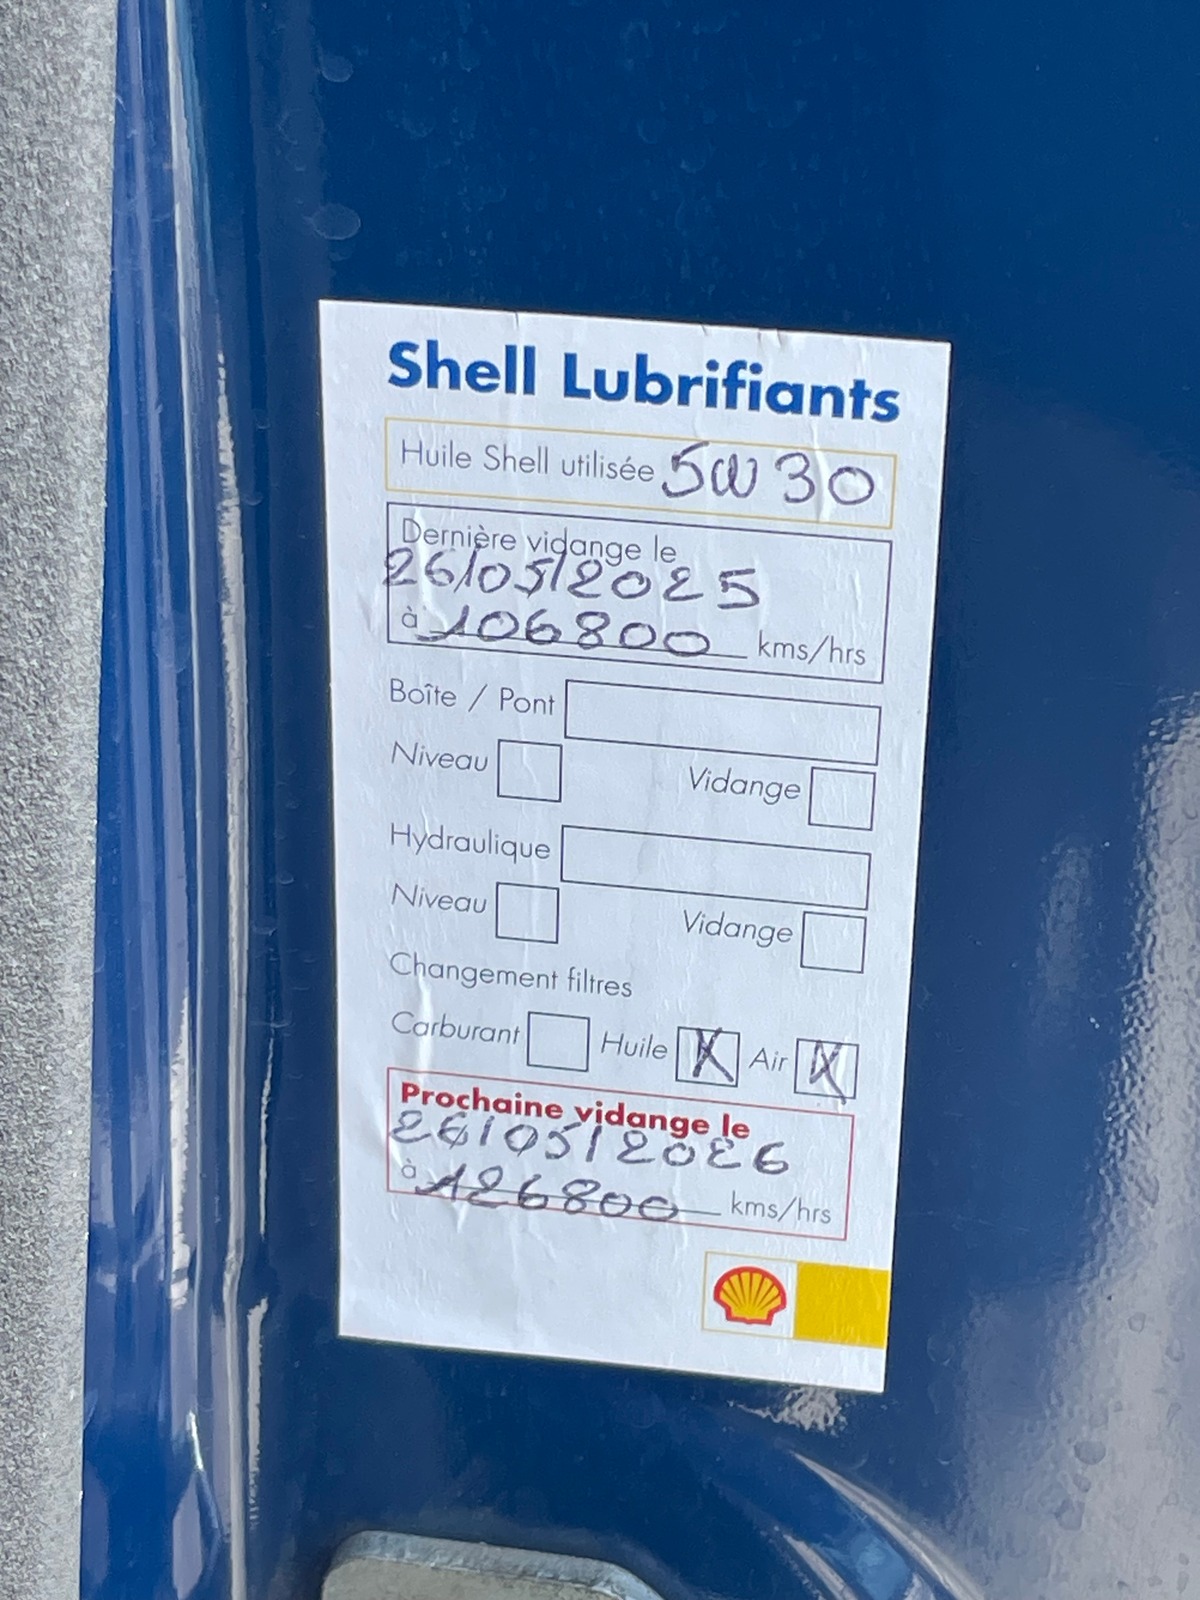 Shell Lubrifiants
Huile Shell utilisée 5W30
Dernière vidange le
26/05/2025
à 106800 kms/hrs
Boîte / Pont
Niveau Vidange
Hydraulique
Niveau Vidange
Changement filtres
Carburant Huile X Air X
Prochaine vidange le
26/05/2026
à 126800 kms/hrs